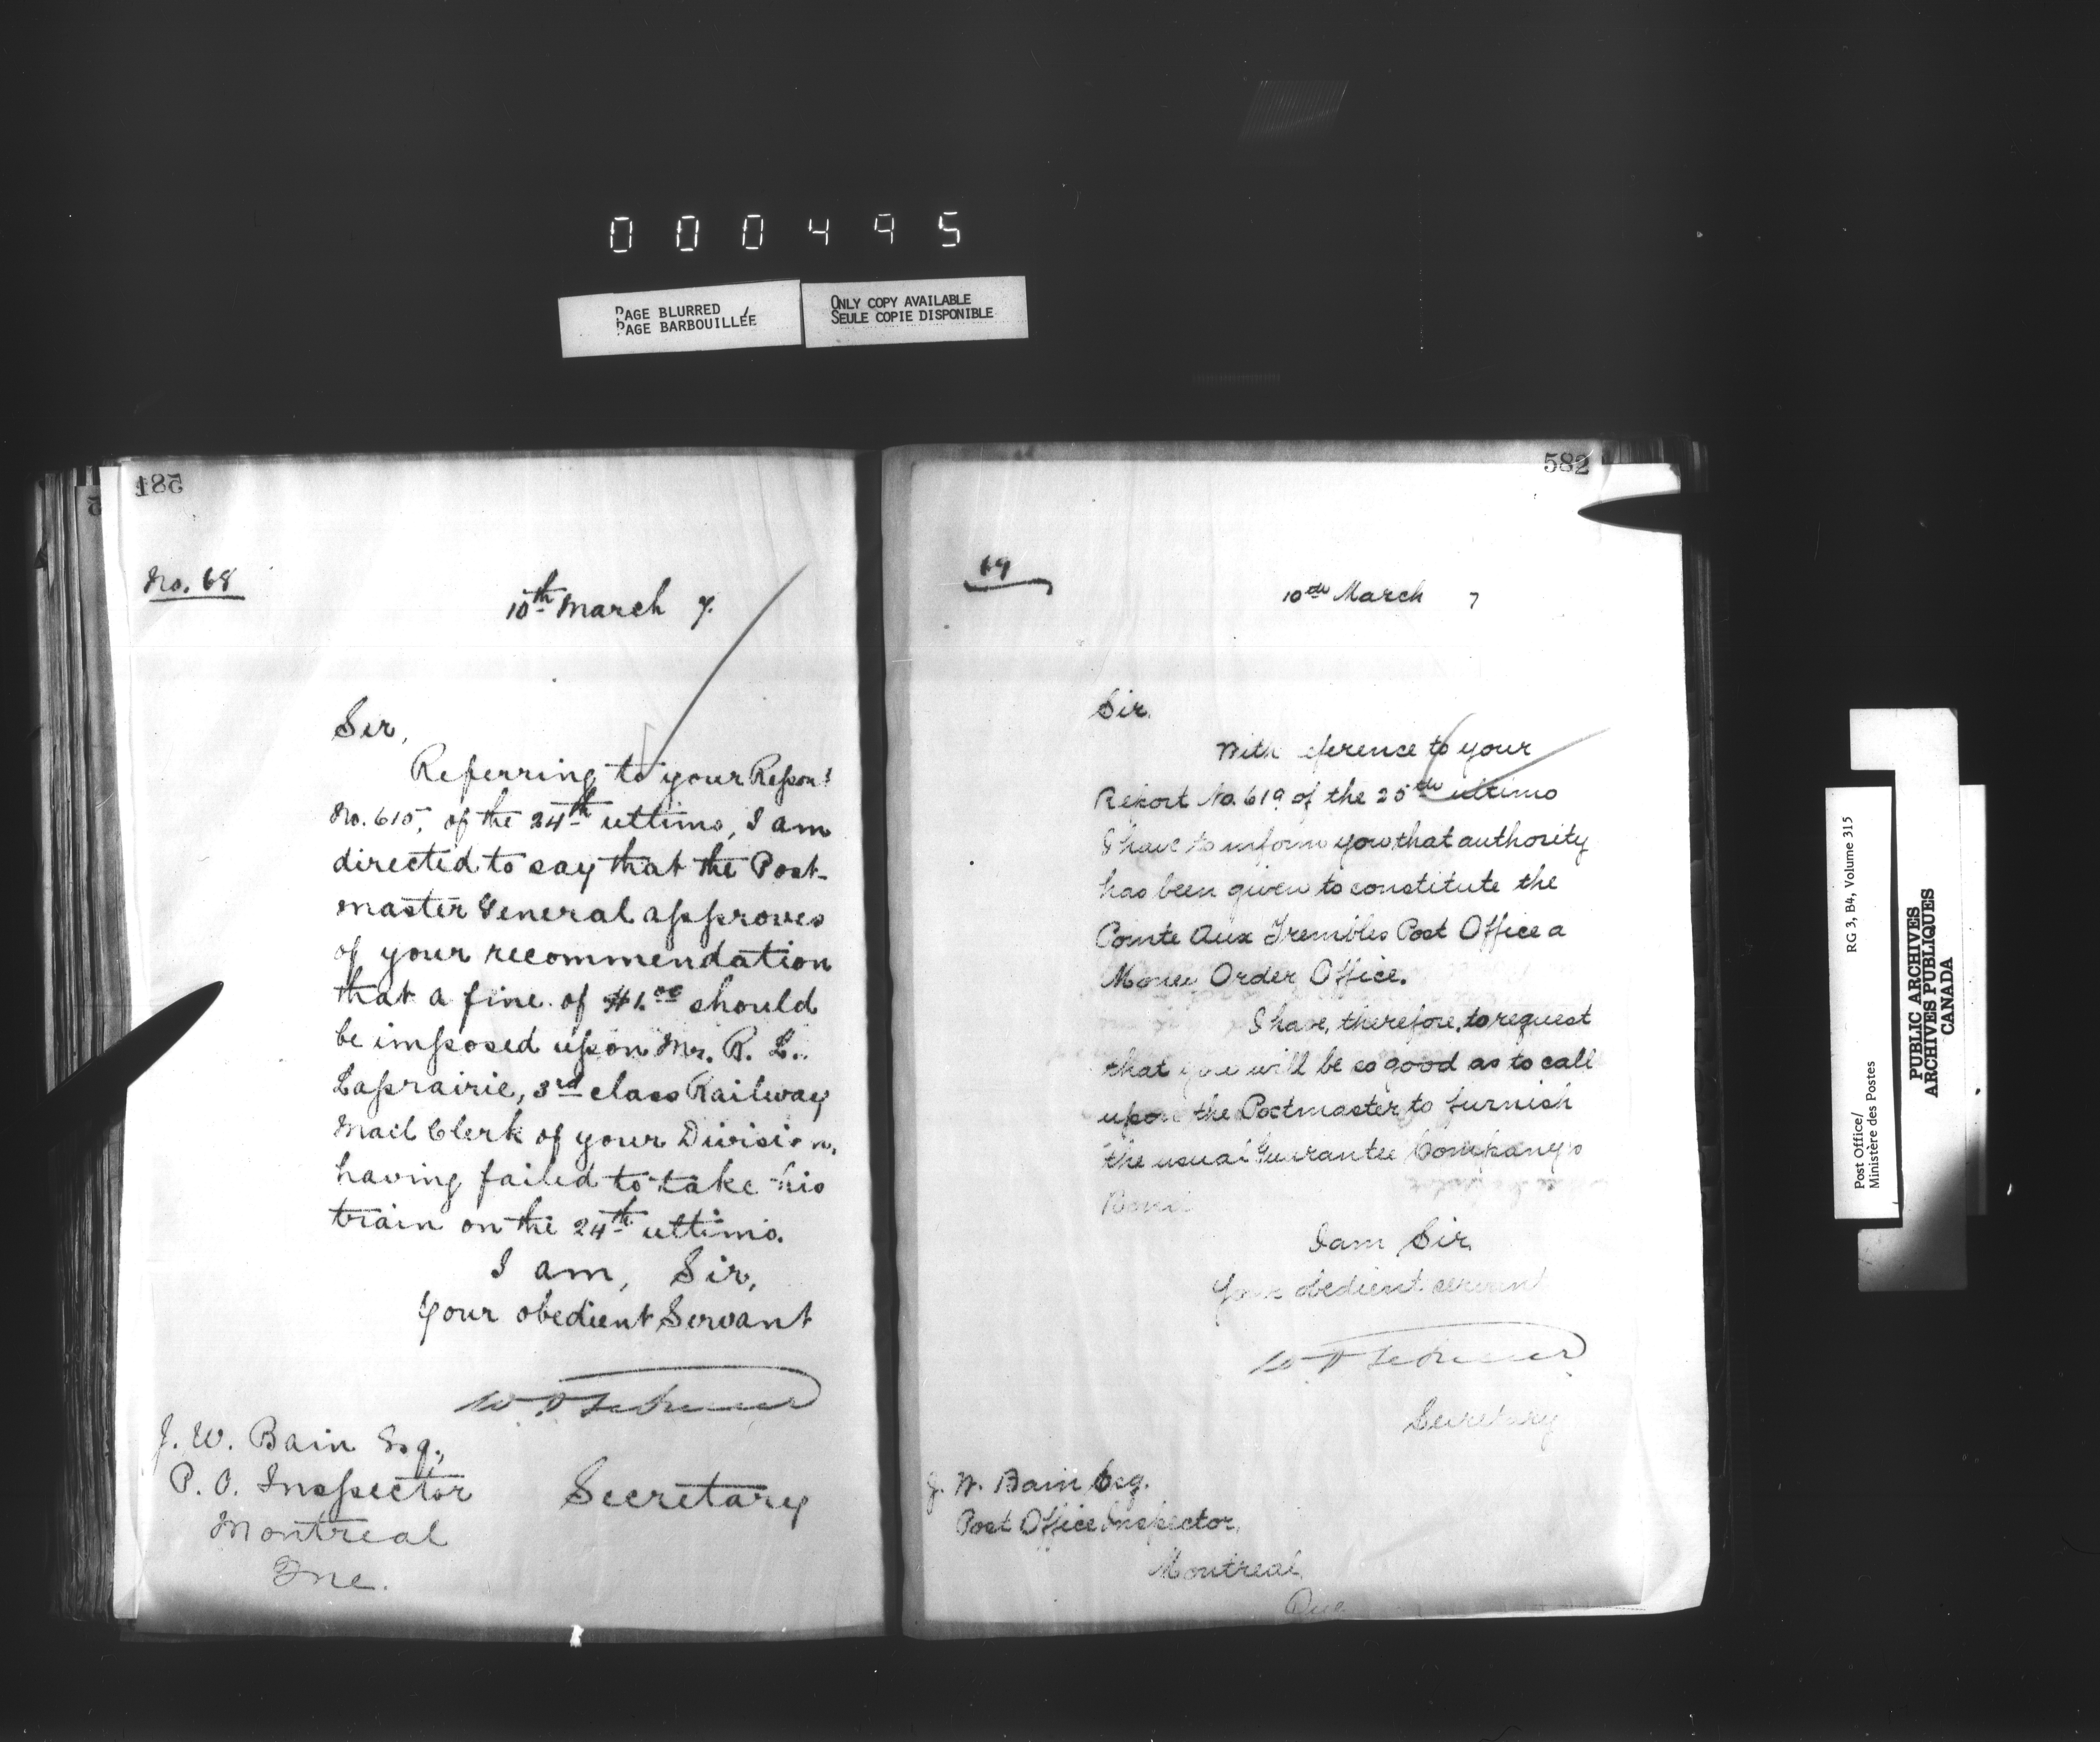 000495
PAGE BLURRED
PAGE BARBOUILLÉE
ONLY COPY AVAILABLE
SEULE COPIE DISPONIBLE
581
No. 68
10th March 7.
Sir,
Referring to your Report
No. 615, of the 24th ultimo, I am
directed to say that the Post-
master General approves
of your recommendation
that a fine of $1.00 should
be imposed upon Mr. R. L.
Laprairie, 3rd class Railway
Mail Clerk of your Division,
having failed to take his
train on the 24th ultimo.
I am, Sir,
Your obedient Servant
Secretary
J. W. Bain Esq.,
P. O. Inspector
Montreal
Que.
582
69
10th March 7
Sir,
With eference to your
Report No. 619 of the 25th ultimo
I have to inform you that authority
has been given to constitute the
Pointe Aux Trembles Post Office a
Money Order Office.
I have, therefore, to request
that you will be so good as to call
upon the Postmaster to furnish
the usual Guarantee Company's
Bond
I am Sir,
Your obedient servant
Secretary
J. W. Bain Esq.
Post Office Inspector,
Montreal,
Que.
RG 3, B4, Volume 315
Post Office/
Ministère des Postes
PUBLIC ARCHIVES
ARCHIVES PUBLIQUES
CANADA